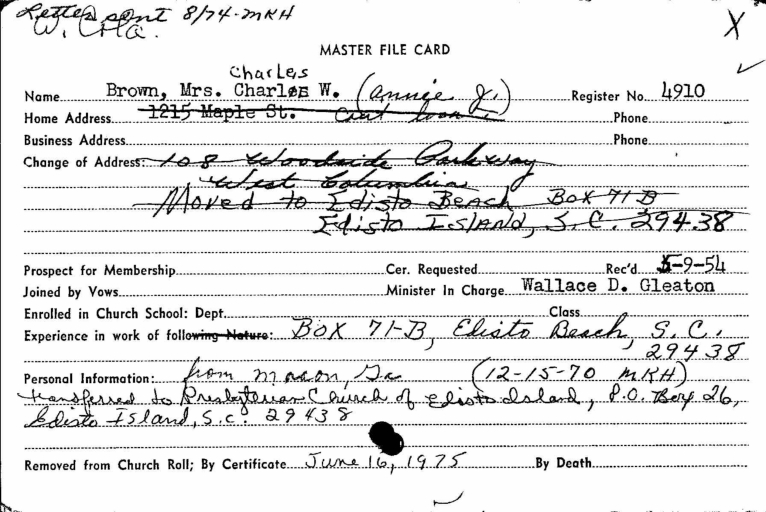 Letter sent 8/74-MKH
X
MASTER FILE CARD
Charles
Name Brown, Mrs. Charles W. (Annie J.) Register No. 4910
Home Address 1215 Maple St. Phone
Business Address Phone
Change of Address: 108 Woodside Parkway
West Columbia
Moved to Edisto Beach Box 71-B
Edisto Island, S.C. 29438
Prospect for Membership Cer. Requested Rec'd 5-9-54
Joined by Vows Minister In Charge Wallace D. Gleaton
Enrolled in Church School: Dept. Class
Experience in work of following Nature: Box 71-B, Edisto Beach, S.C.
29438
Personal Information: from Macon, Ga (12-15-70 MKH)
transferred to Presbyterian Church of Edisto Island, P.O. Box 26,
Edisto Island, S.C. 29438
Removed from Church Roll; By Certificate June 16, 1975 By Death